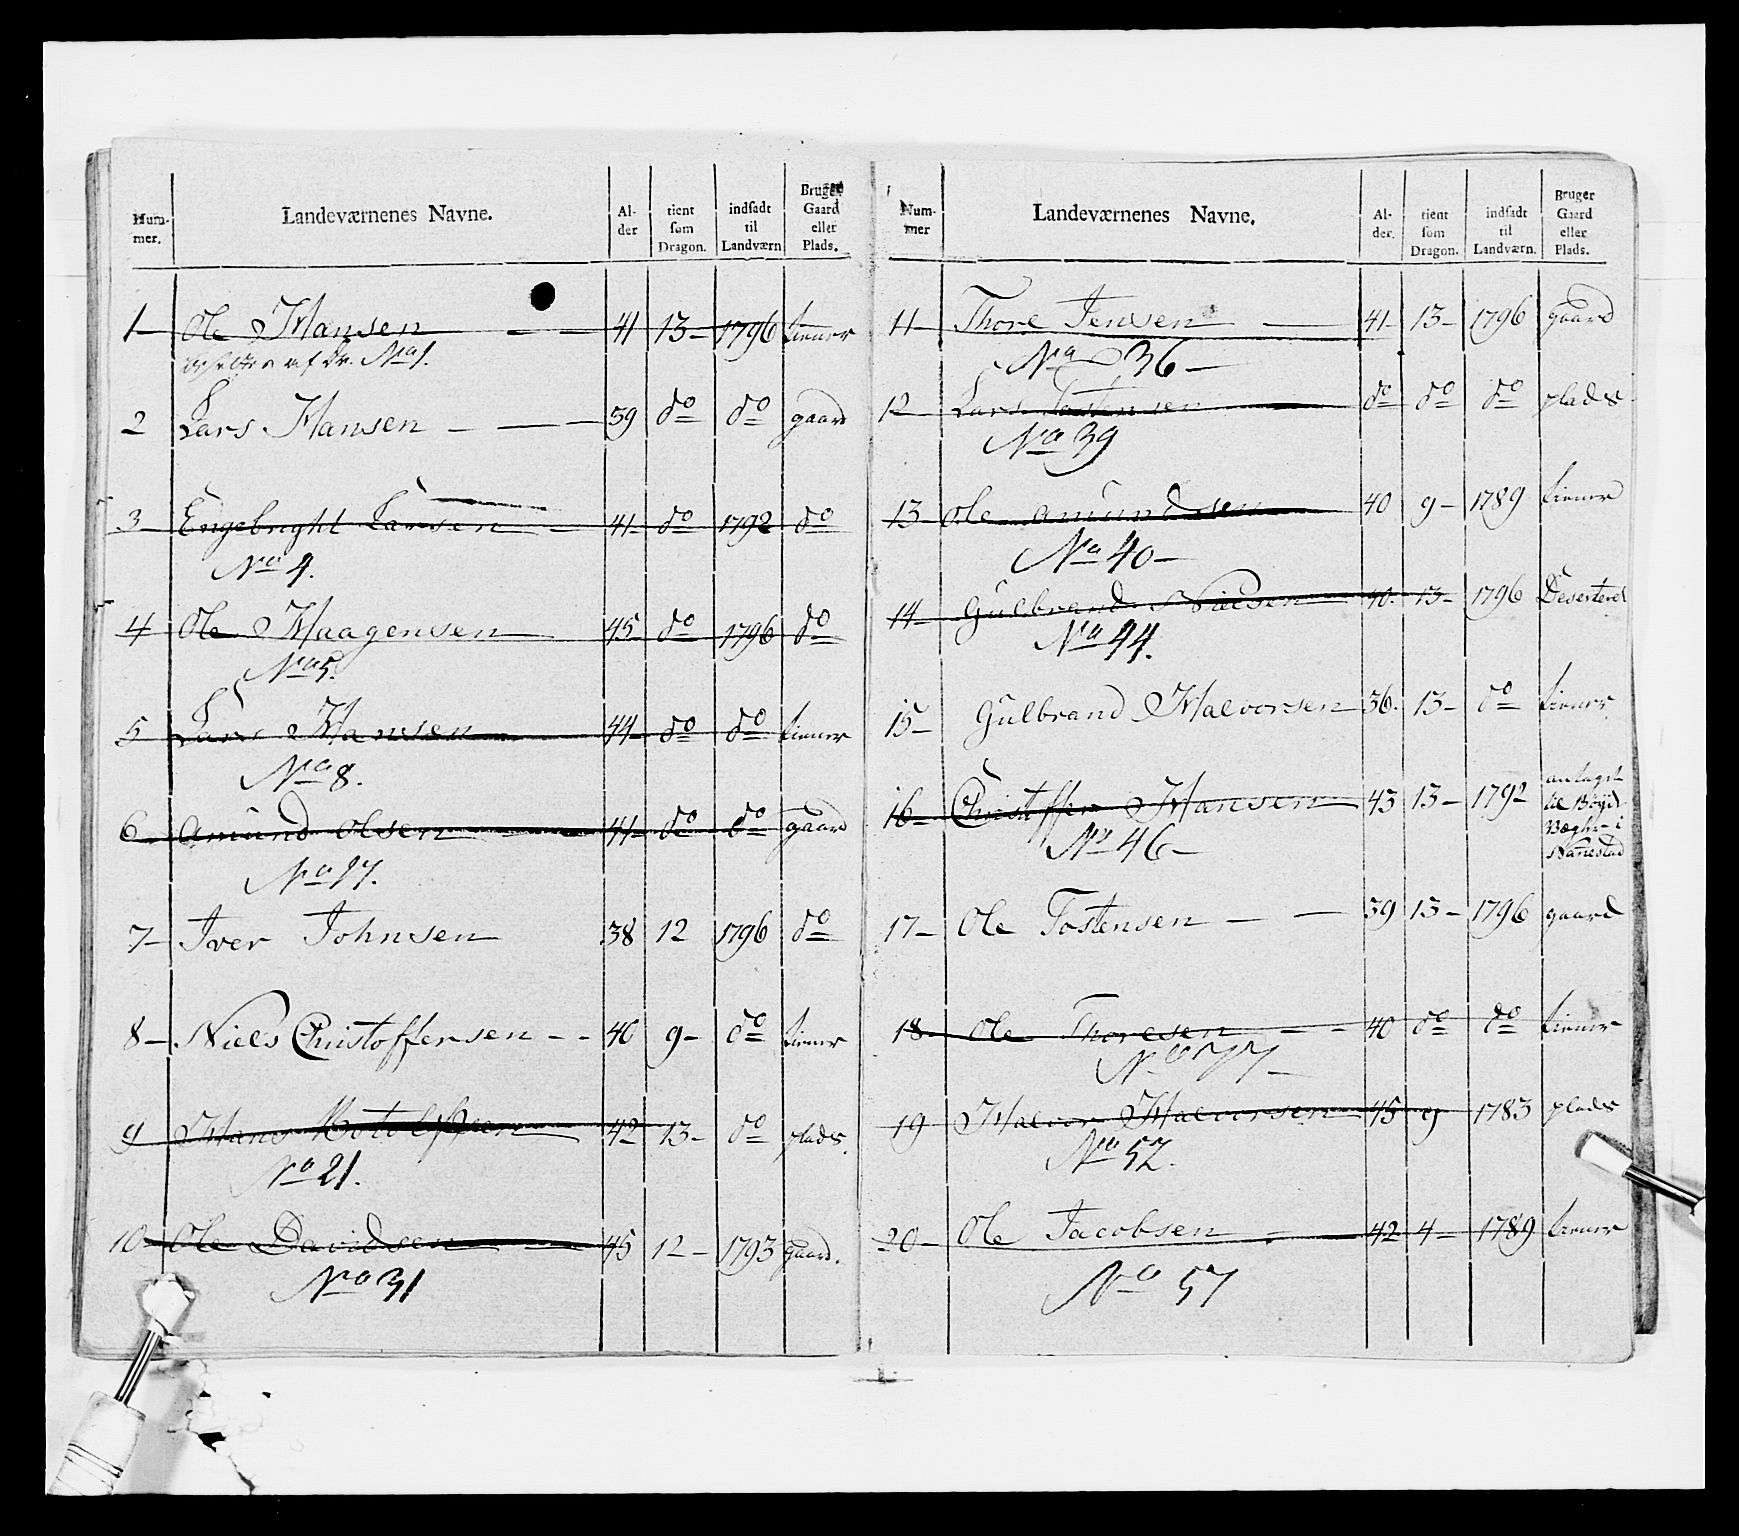 Num-mer. Landeværnenes Navne. Al-der tient som Dragon. indsadt til Landværn Bruger Gaard eller Plads.
1 Ole Hansen 41 13 1796 tiener
af Dr. No 1.
2 Lars Hansen 39 do do gaard
3 Engebright Larsen 41 do 1792 do
No 4.
4 Ole Haagensen 45 do 1796 do
No 5.
5 Lars Hansen 44 do do tiener
No 8.
6 Amund Olsen 41 do do gaard
No 17.
7 Iver Johnsen 38 12 1796 do
8 Niels Christoffersen 40 9 do tiener
9 Hans Botolfsen 42 13 do plads.
No 21.
10 Ole Davidsen 45 12 1793 gaard.
No 31
Num-mer Landeværnenes Navne. Al-der. tient som Dragon. indsadt til Landværn. Bruger Gaard eller Plads.
11 Thore Jensen 41 13 1796 gaard
No 36
12 Lars Tostensen do do do plads
No 39
13 Ole Amundsen 40 9 1789 tiener
No 40
14 Gulbrand Nielsen 40. 13 1796 Deserteret
No 44.
15 Gulbrand Halvorsen 36. 13 do tiener
16 Christoffer Hansen 43 13 1792 antaget til Bøyde i Nanestad
No 46
17 Ole Tostensen 39 13 1796 gaard
18 Ole Thoresen 40 do do tiener
No
19 Halvor Halvorsen 45 9 1783 plads
No 52.
20 Ole Jacobsen 42 4 1789 tiener
No 57